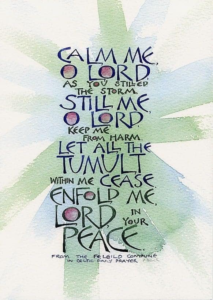 CALM ME,
O LORD
AS YOU STILLED
THE STORM.
STILL ME,
O LORD
KEEP ME
FROM HARM.
LET ALL THE
TUMULT,
WITHIN ME CEASE
ENFOLD ME,
LORD, IN YOUR
PEACE.
FROM THE FELGILD COMPLINE
IN CELTIC DAILY PRAYER